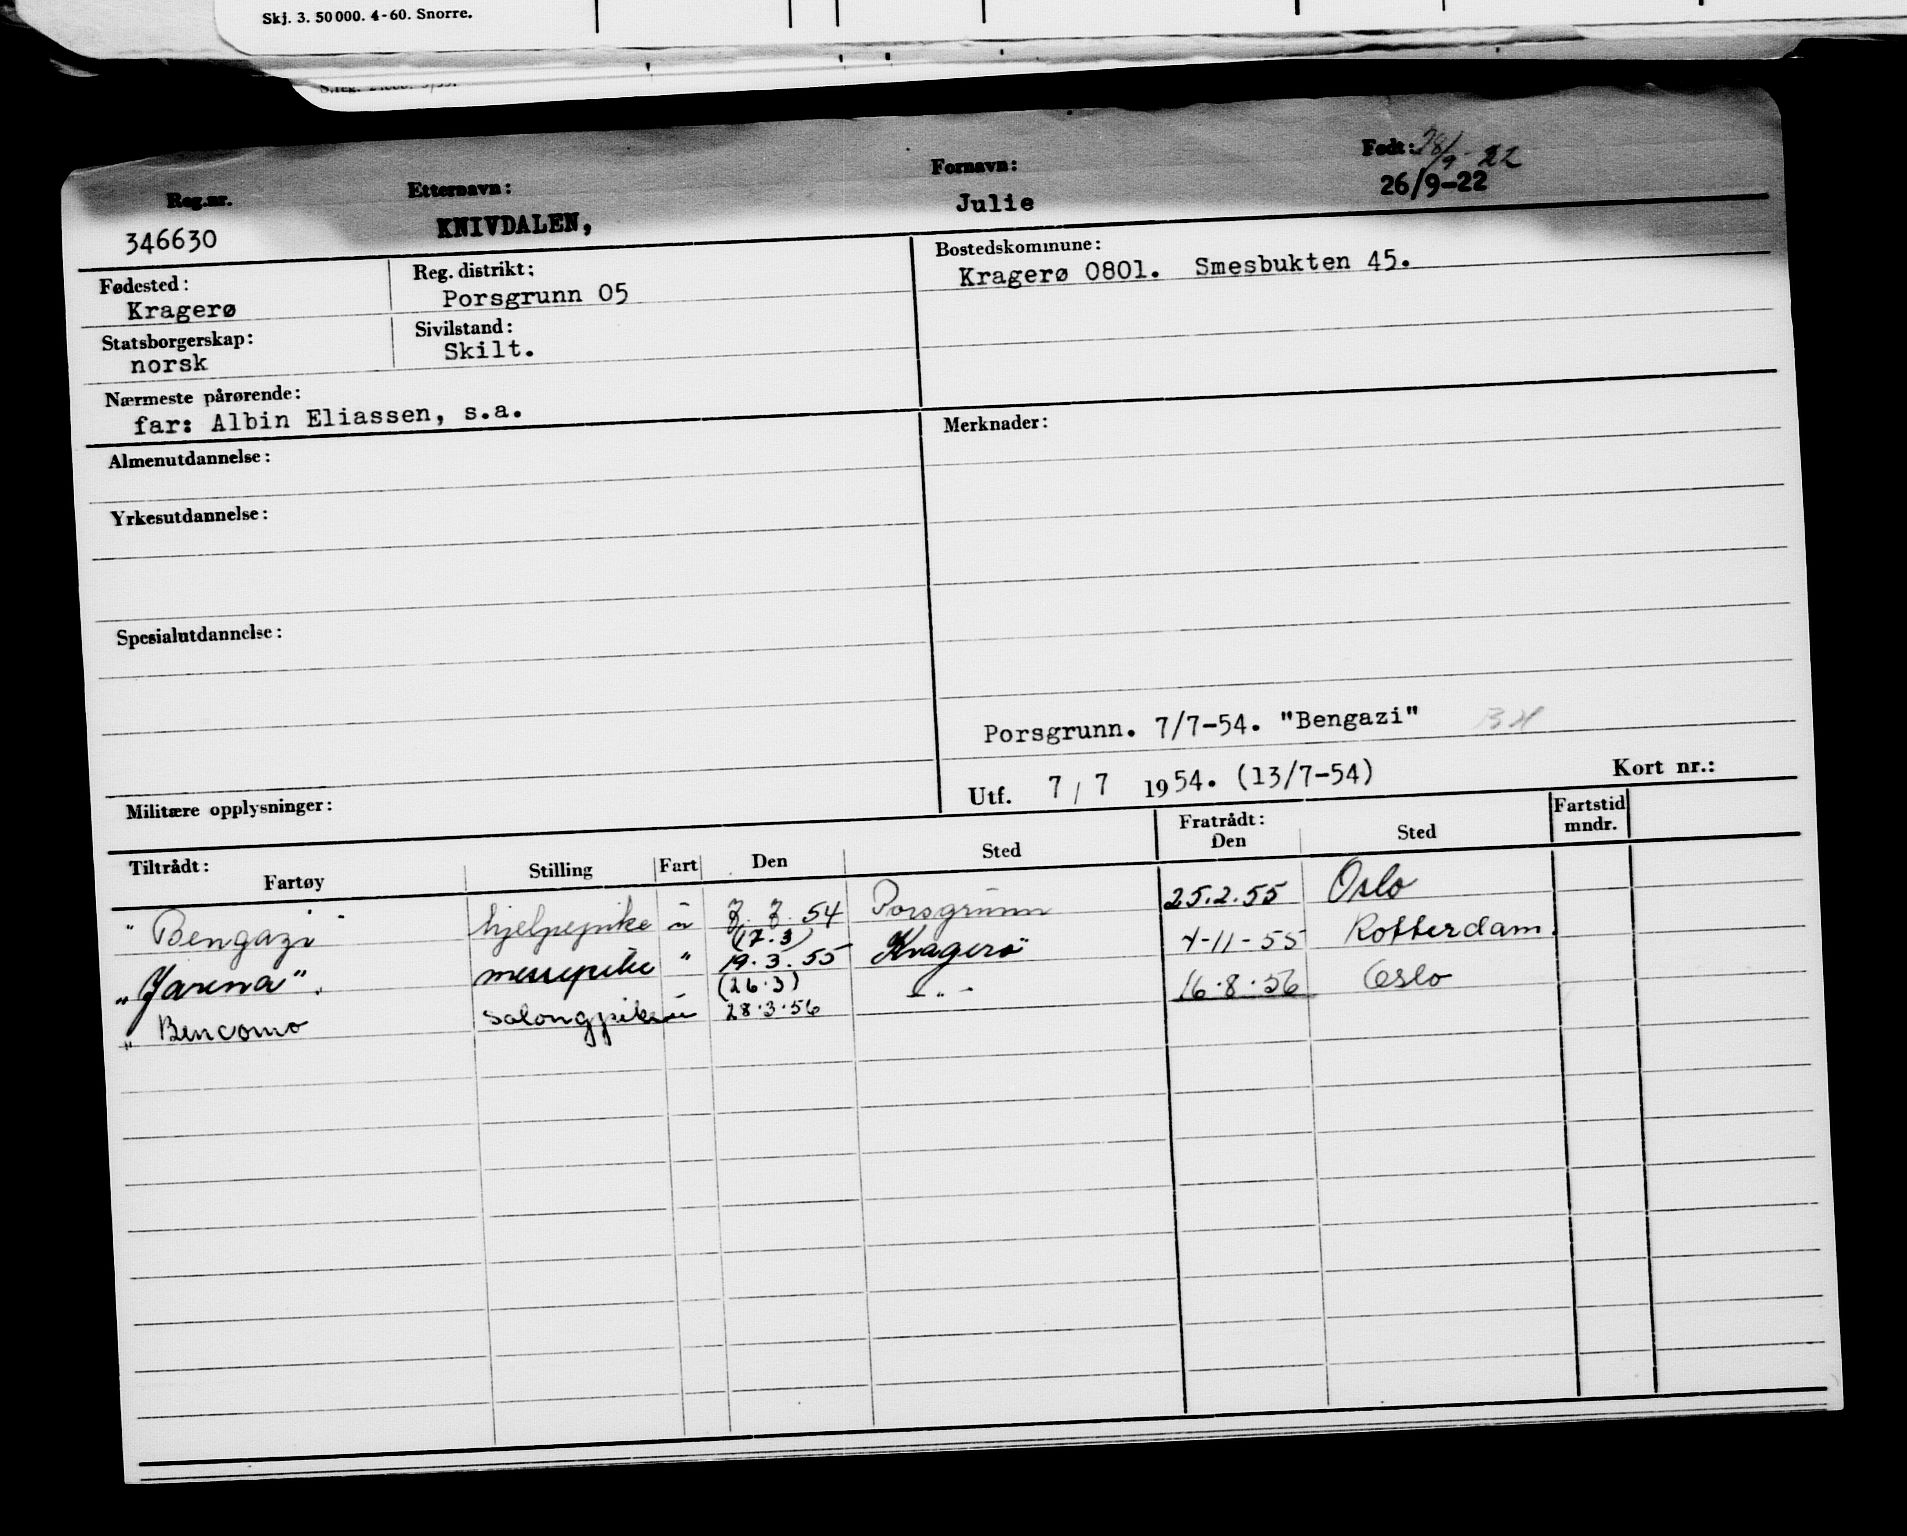 Skj. 3. 50 000. 4-60. Snorre.
Reg.nr. Etternavn: Fornavn: Født: 28/9-22
346630 KNIVDALEN, Julie 26/9-22
Fødested: Reg. distrikt: Bostedskommune:
Kragerø Porsgrunn 05 Kragerø 0801. Smesbukten 45.
Statsborgerskap: Sivilstand:
norsk Skilt.
Nærmeste pårørende:
far: Albin Eliassen, s.a.
Almenutdannelse: Merknader:
Yrkesutdannelse:
Spesialutdannelse:
Porsgrunn. 7/7-54. "Bengazi"
Militære opplysninger: Utf. 7/7 1954. (13/7-54) Kort nr.:
Tiltrådt: Fratrådt: Fartstid
Fartøy Stilling Fart Den Sted Den Sted mndr.
" Bengazi " hjelpepike u 7. 7. 54 Porsgrunn 25.2.55 Oslo
(17.3)
"Jarena". messepike " 19.3.55 Kragerø 4-11-55 Rotterdam.
(26.3)
" Bencomo salongpike u 28.3.56 - " - 16.8.56 Oslo